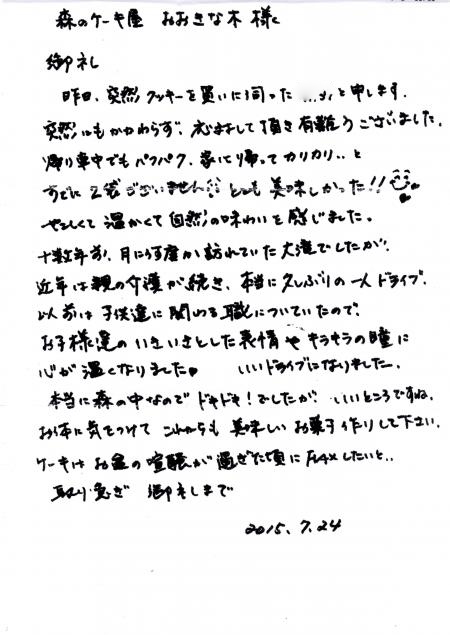 森のケーキ屋 おおきな木 様
御礼
昨日、突然クッキーを買いに伺った と申します。
突然にもかかわらず、応対して頂き有難うございました。
帰り車中でもパクパク、家に帰ってカリカリ‥と
すでに2袋ございません!! とっても美味しかった!!
やさしくて温かくて自然の味わいを感じました。
十数年前、月に1度か訪れていた大滝でしたが、
近年は親の介護が続き、本当に久しぶりの一人ドライブ。
以前は子供達に関わる職についていたので、
お子様達のいきいきとした表情やキラキラの瞳に
心が温くなりました♥ いいドライブになりました。
本当に森の中なのでドキドキ!でしたが、いいところですね。
お体に気をつけてこれからも美味しいお菓子作りして下さい。
ケーキはお盆の喧騒が過ぎた頃にFAXしたいと‥
取り急ぎ 御礼まで
2015.7.24